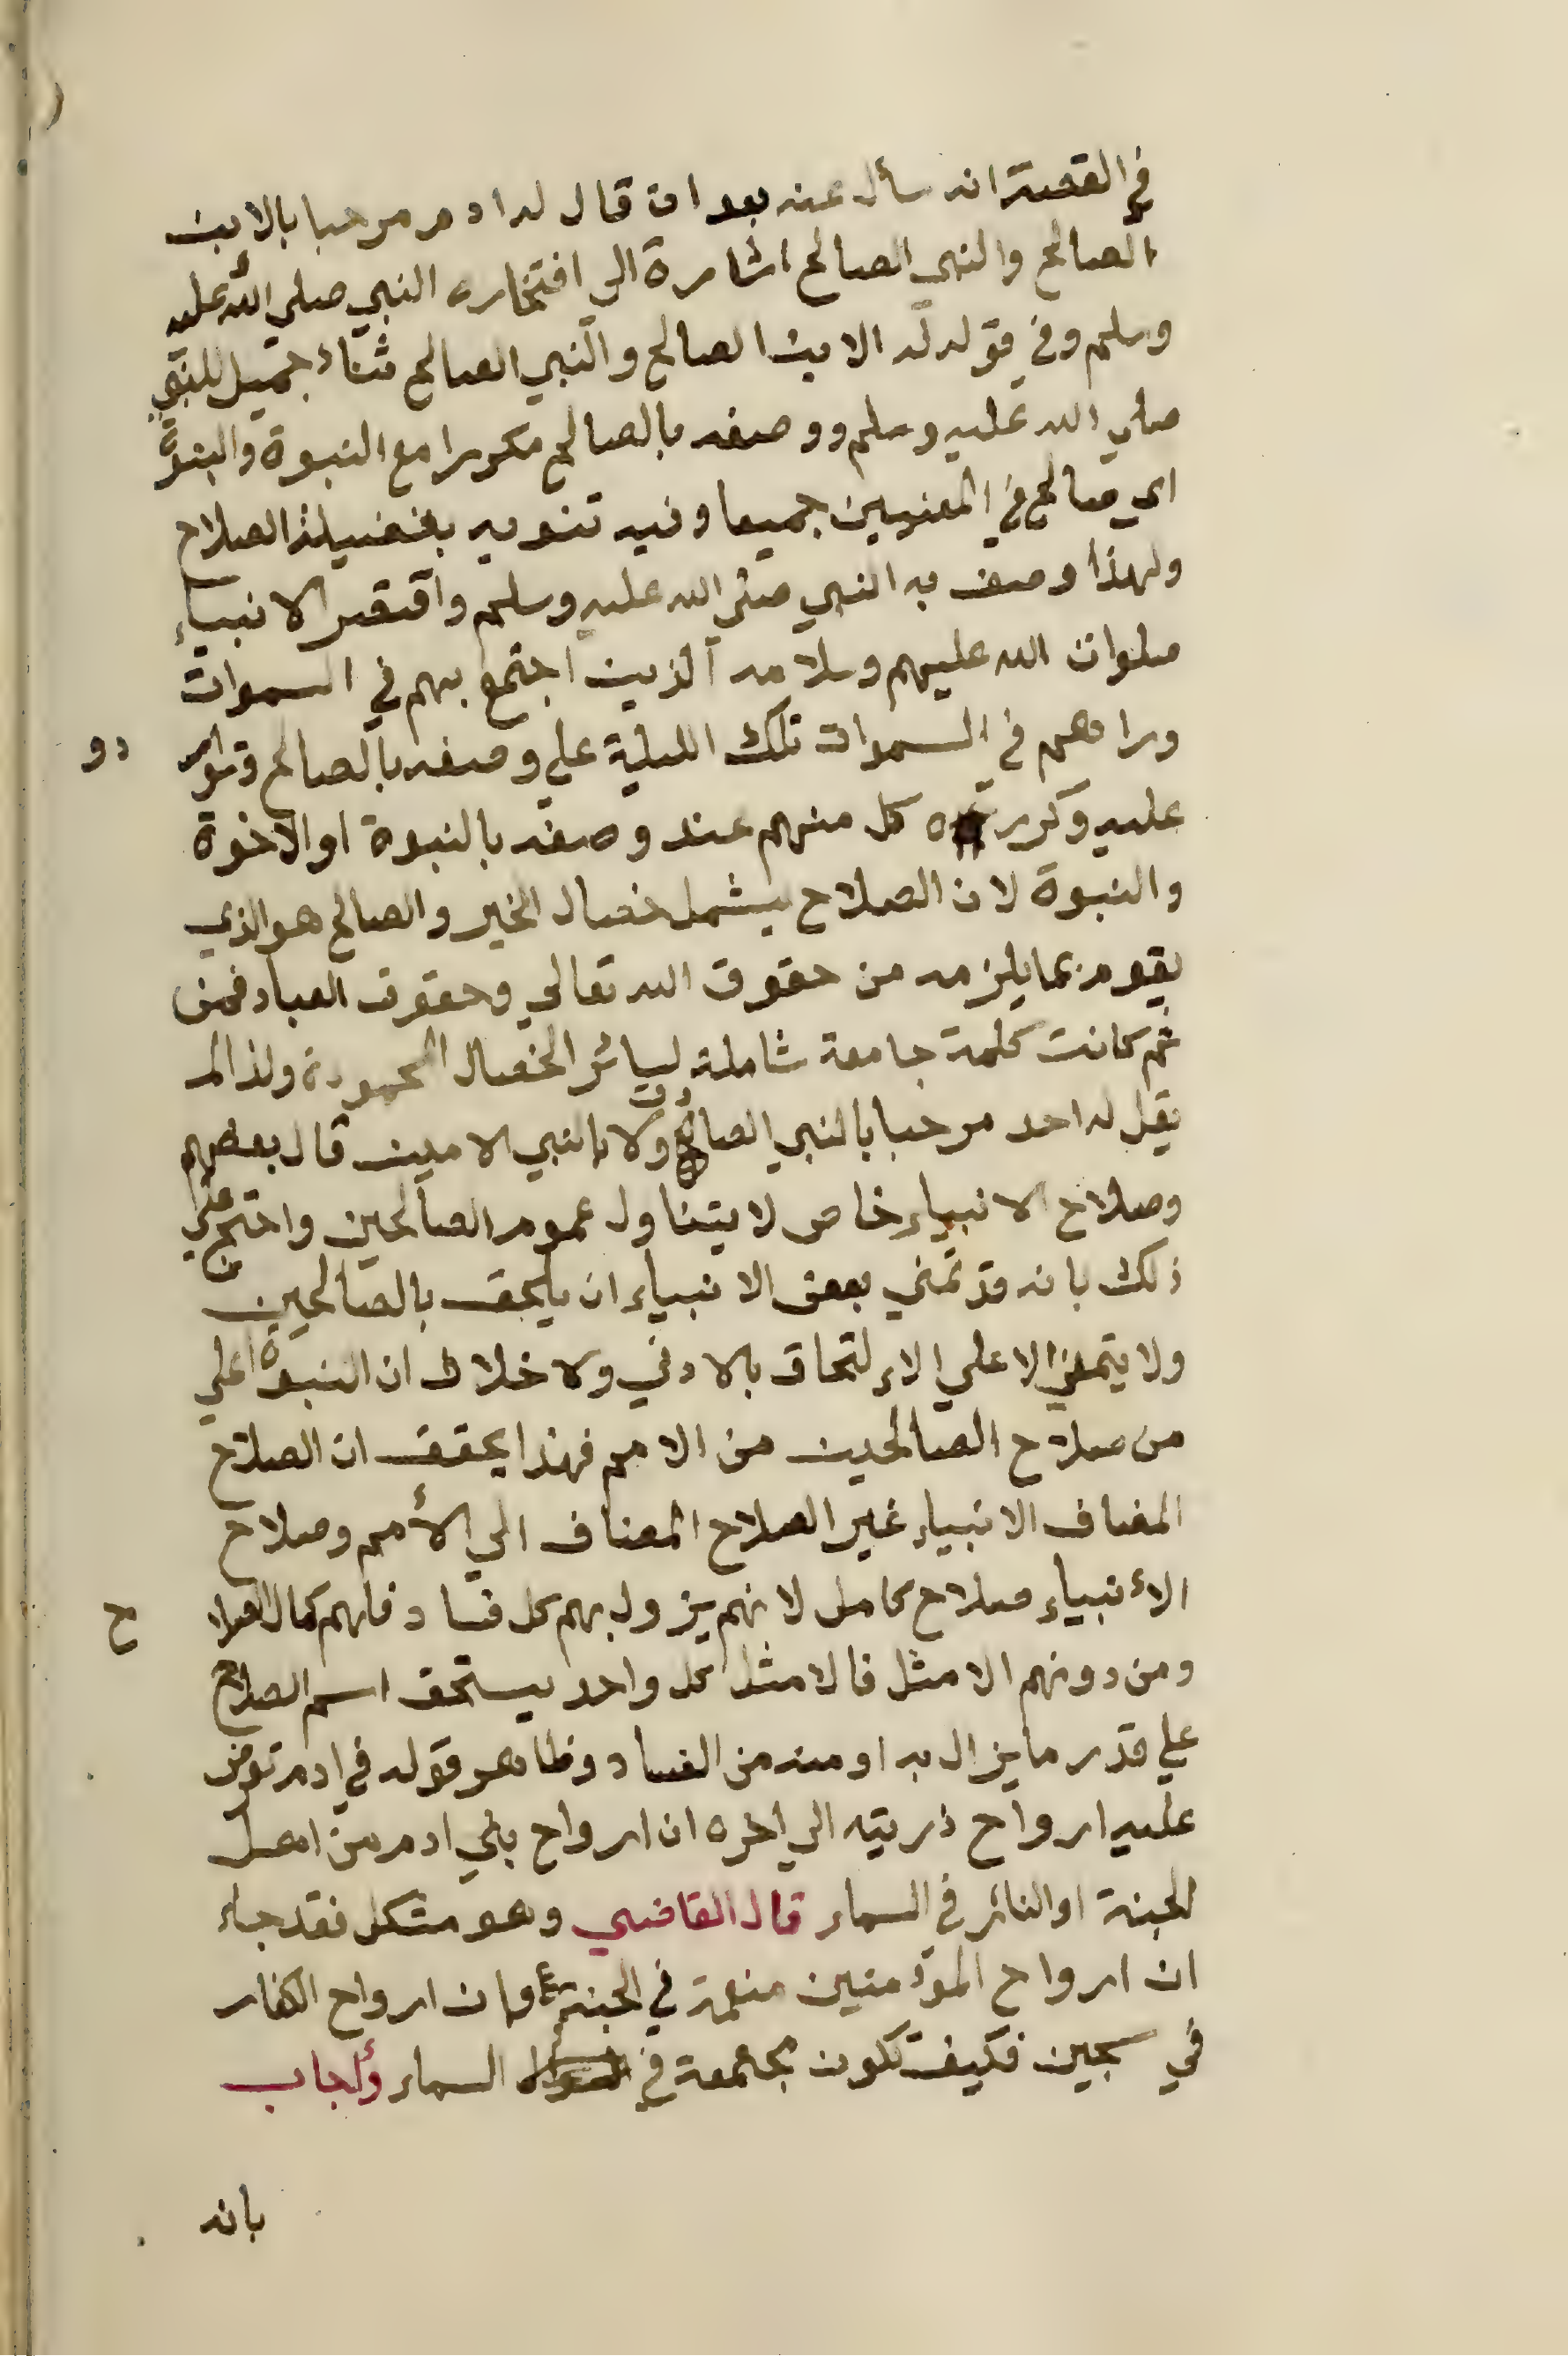 في القصة انه سأل عنه بعد ان قال له ادم مرحبا بالابن
الصالح والنبي الصالح اشارة الي افتخاره النبي صلي الله عليه
وسلم وفي قوله له الابن الصالح والنبي الصالح ثناء جميل للنبي
صلي الله عليه وسلم ووصفه بالصالح مكررا مع النبوة والبنوة
اي صالح في المعنيين جميعا وفيه تنويه بفضيلة الصلاح
ولهذا وصف به النبي صلي الله عليه وسلم واقتصر الانبياء
صلوات الله عليهم وسلامه الذين اجتمع بهم في السموات
وراهم في السموات تلك الليلة علي وصفه بالصالح وتوار دو
عليه وكرره كل منهم عند وصفه بالنبوة او الاخوة
والنبوة لان الصلاح يشمل خصال الخير والصالح هو الذي
يقوم بما يلزمه من حقوق الله تعالي وحقوق العباد فمن
ثم كانت كلمة جامعة شاملة لسائر الخصال المحمودة ولذا لم
يقل له احد مرحبا بالنبي الصادق ولا بالنبي الامين قال بعضهم
وصلاح الانبياء خاص لا يتناول عموم الصالحين واحتج علي
ذلك بانه قد تمني بعض الانبياء ان يلحق بالصالحين
ولا يتمني الاعلي الالتحاق بالادني ولا خلاف ان النبوة اعلي
من صلاح الصالحين من الامم فهذا يحقق ان الصلاح
المضاف الانبياء غير الصلاح المضاف الي الأمم وصلاح
الأنبياء صلاح كامل لانهم يزول بهم كل فساد فلهم كمال الصلا ح
ومن دونهم الامثل فالامثل كل واحد يستحق اسم الصلاح
علي قدر ما يزال به او منه من الفساد وظاهر قوله في ادم تعرض
عليه ارواح ذريته الي اخره ان ارواح بني ادم من اهل
الجنة او النار في السماء قال القاضي وهو مشكل فقد جاء
ان ارواح المؤمنين منعمة في الجنة وان ارواح الكفار
في سجين فكيف تكون مجتمعة في السماء وأجاب
بانه